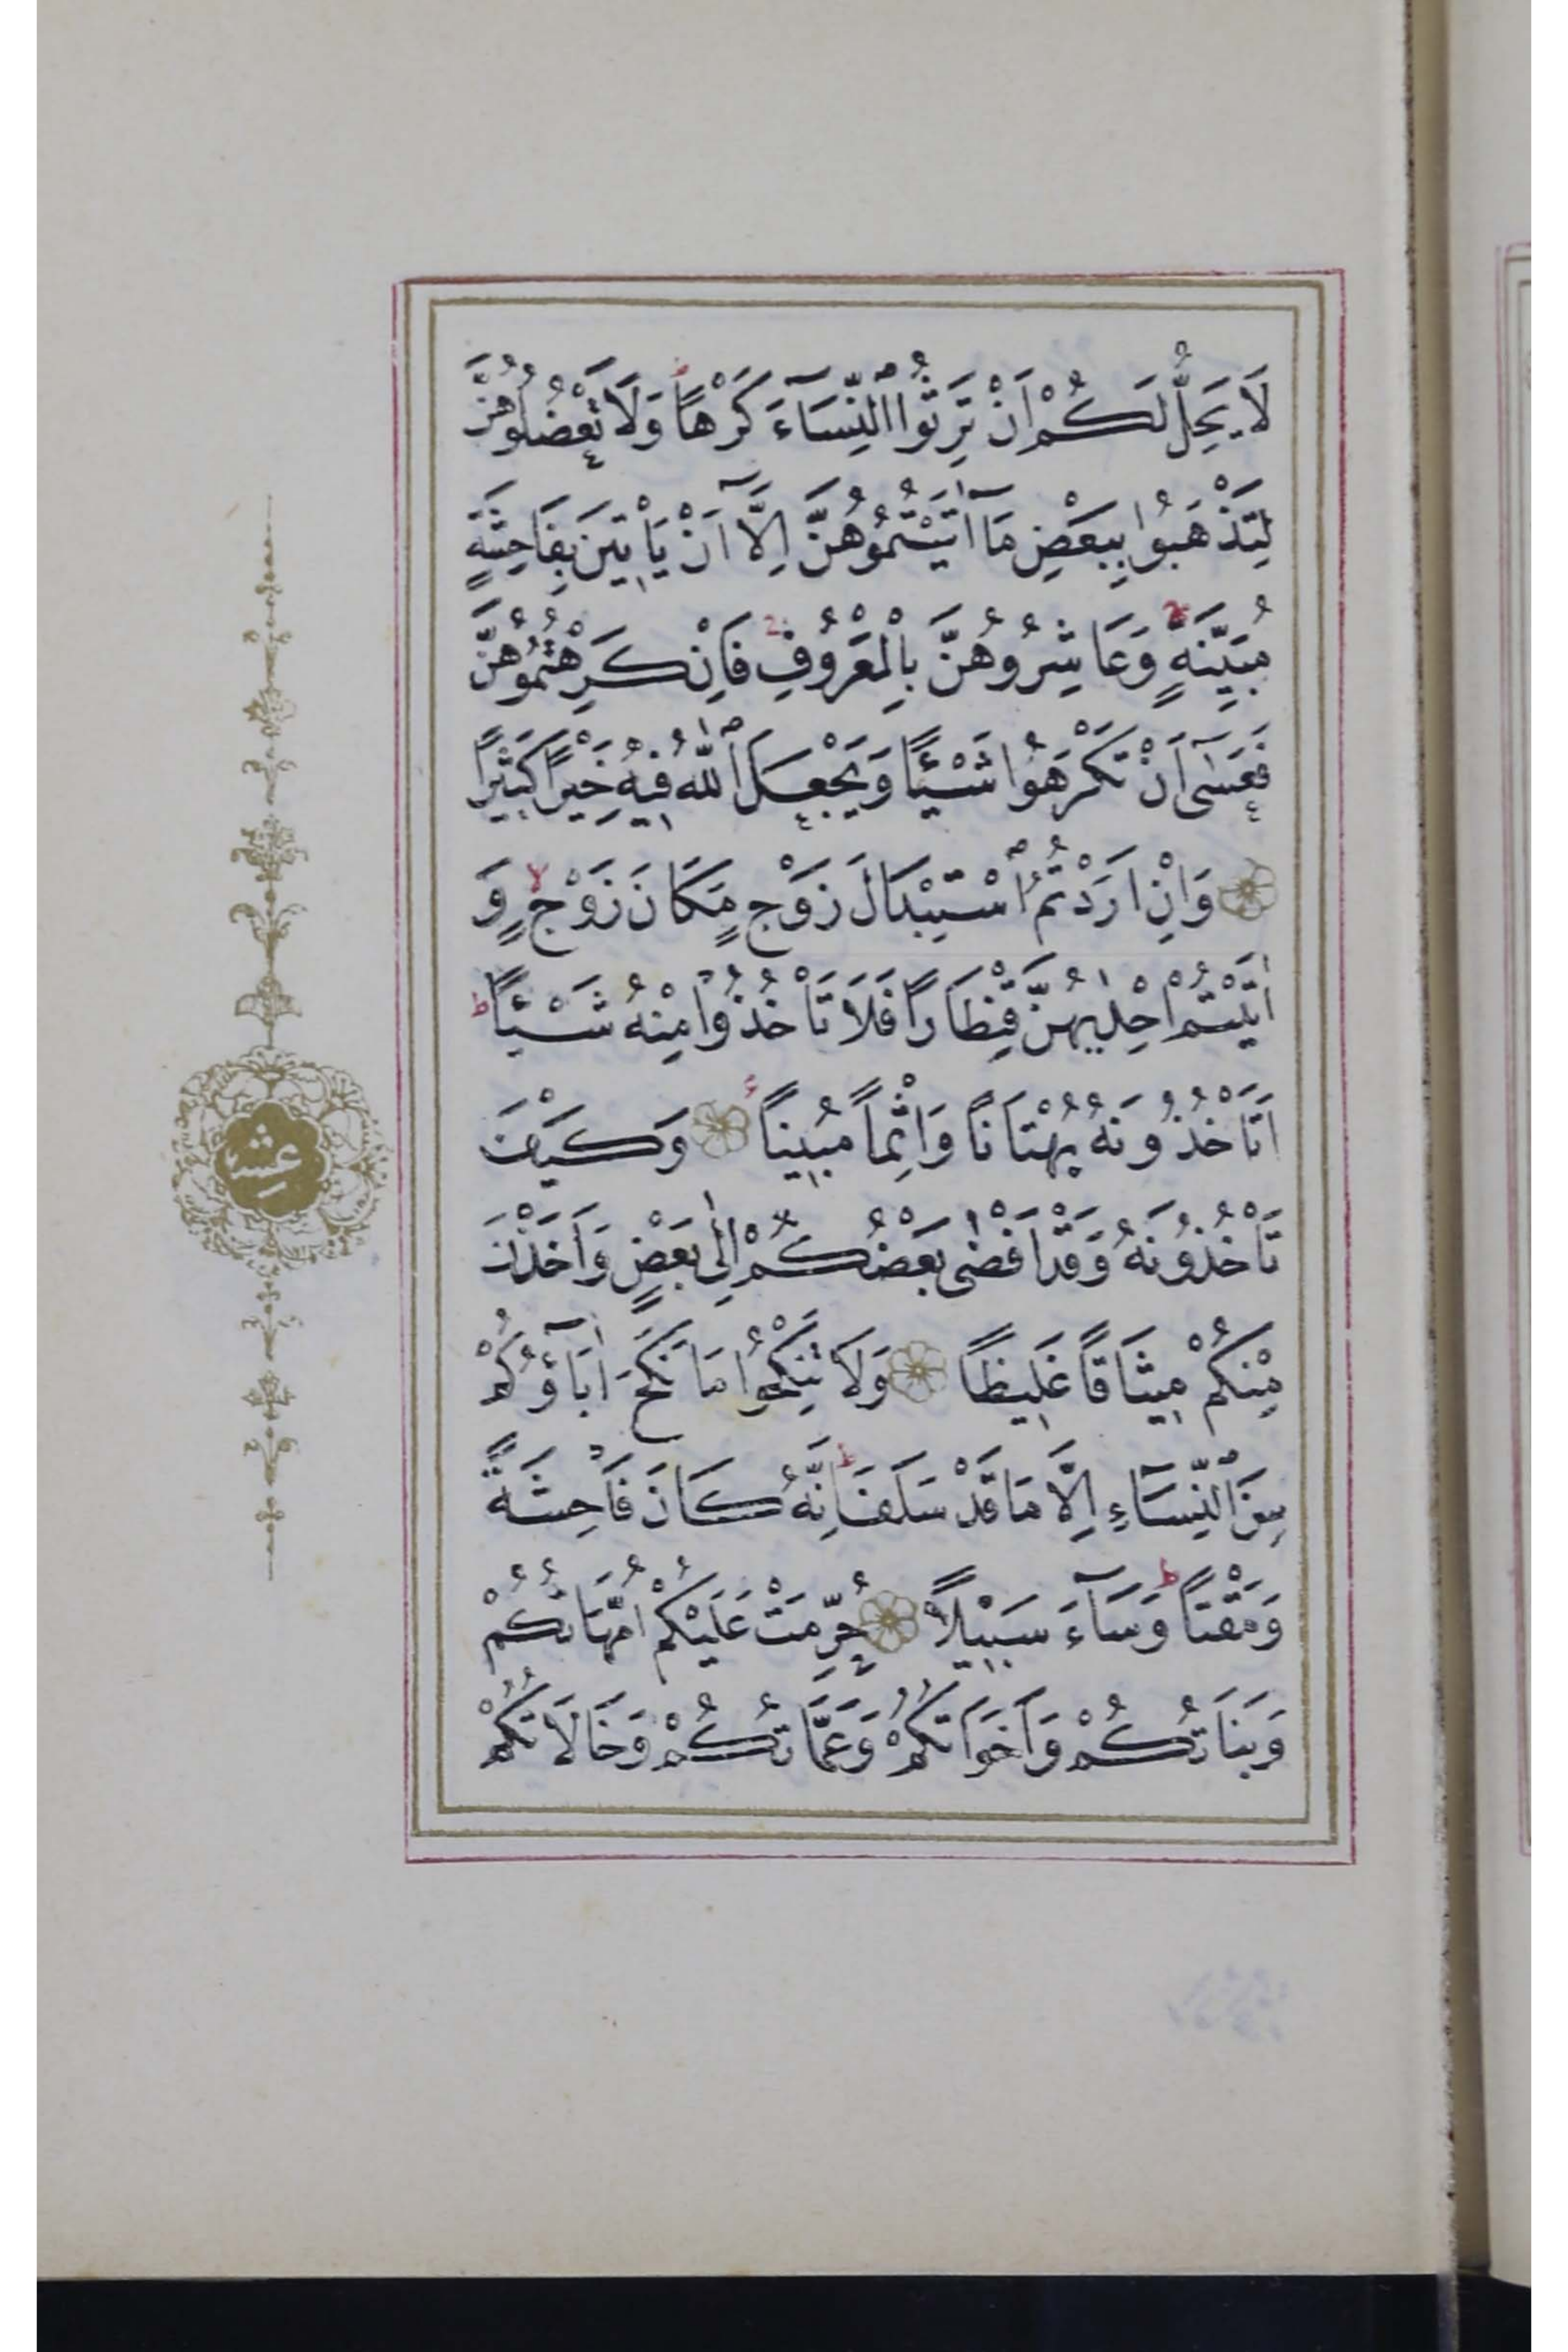 لَا يَحِلُّ لَكُمْ اَنْ تَرِثُوا ٱلنِّسَآءَ كَرْهًاۜ وَلَا تَعْضُلُوهُنَّ
لِتَذْهَبُوا بِبَعْضِ مَآ اٰتَيْتُمُوهُنَّ اِلَّآ اَنْ يَأْتِينَ بِفَاحِشَةٍ
مُبَيِّنَةٍۚ وَعَاشِرُوهُنَّ بِالْمَعْرُوفِۚ فَاِنْ كَرِهْتُمُوهُنَّ
فَعَسٰٓى اَنْ تَكْرَهُوا شَيْـًٔا وَيَجْعَلَ ٱللّٰهُ فِيهِ خَيْرًا كَثِيْرًا
وَاِنْ اَرَدْتُمُ ٱسْتِبْدَالَ زَوْجٍ مَكَانَ زَوْجٍۙ وَ
اٰتَيْتُمْ اِحْدٰيهُنَّ قِنْطَارًا فَلَا تَأْخُذُوْا مِنْهُ شَيْـًٔاۜ
اَتَأْخُذُونَهُ بُهْتَانًا وَاِثْمًا مُبِينًا وَكَيْفَ
تَأْخُذُونَهُ وَقَدْ اَفْضٰى بَعْضُكُمْ اِلٰى بَعْضٍ وَاَخَذْنَ
مِنْكُمْ مِيثَاقًا غَلِيظًا وَلَا تَنْكِحُوا مَا نَكَحَ اٰبَآؤُكُمْ
مِنَ ٱلنِّسَآءِ اِلَّا مَا قَدْ سَلَفَۜ اِنَّهُ كَانَ فَاحِشَةً
وَمَقْتًاۜ وَسَآءَ سَبِيْلًا حُرِّمَتْ عَلَيْكُمْ اُمَّهَاتُكُمْ
وَبَنَاتُكُمْ وَاَخَوَاتُكُمْ وَعَمَّاتُكُمْ وَخَالَاتُكُمْ
عشر